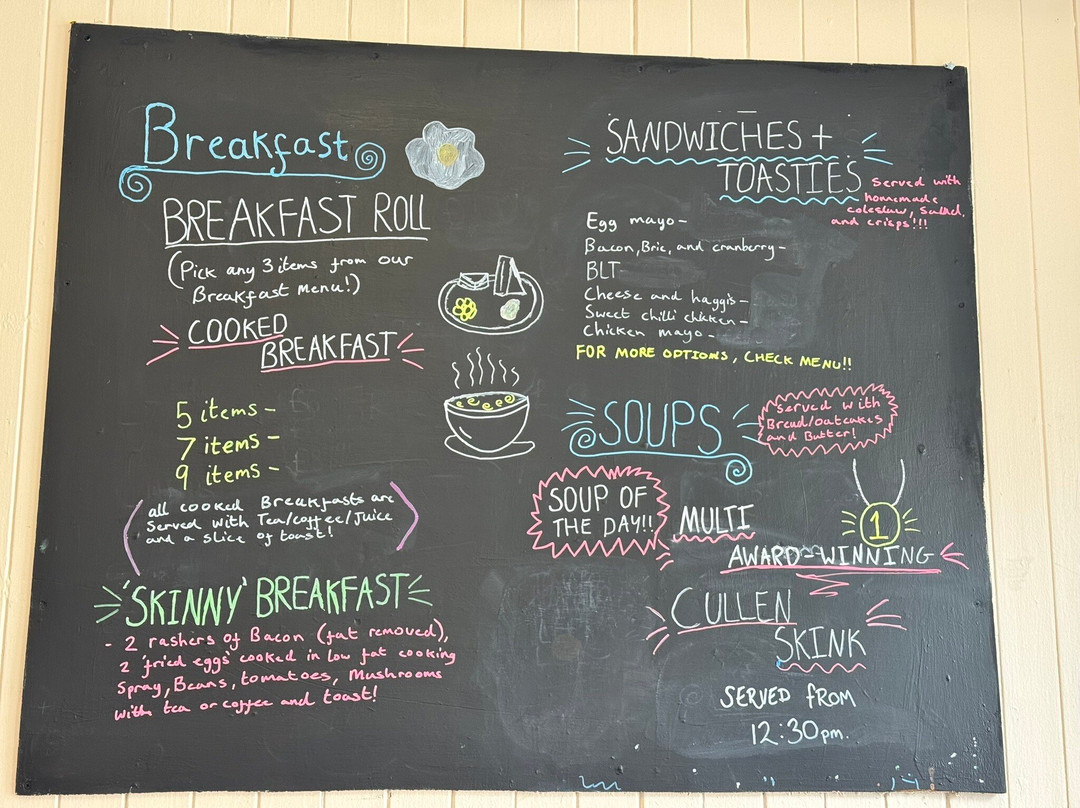 Breakfast
BREAKFAST ROLL
(Pick any 3 items from our
Breakfast menu!)
COOKED
BREAKFAST
5 items -
7 items -
9 items -
(all cooked Breakfasts are
Served with Tea/coffee/Juice
and a slice of toast!)
'SKINNY' BREAKFAST
- 2 rashers of Bacon (fat removed),
2 fried eggs cooked in low fat cooking
Spray, Beans, tomatoes, Mushrooms
with tea or coffee and toast!
SANDWICHES +
TOASTIES
Served with
homemade
coleslaw, Salad,
and crisps!!!
Egg mayo -
Bacon, Brie, and cranberry -
BLT
Cheese and haggis -
Sweet chilli chicken -
Chicken mayo -
FOR MORE OPTIONS, CHECK MENU!!
SOUPS
Served with
Bread/oatcakes
and Butter!
SOUP OF
THE DAY!!
MULTI
AWARD-WINNING
1
CULLEN
SKINK
SERVED FROM
12:30pm.